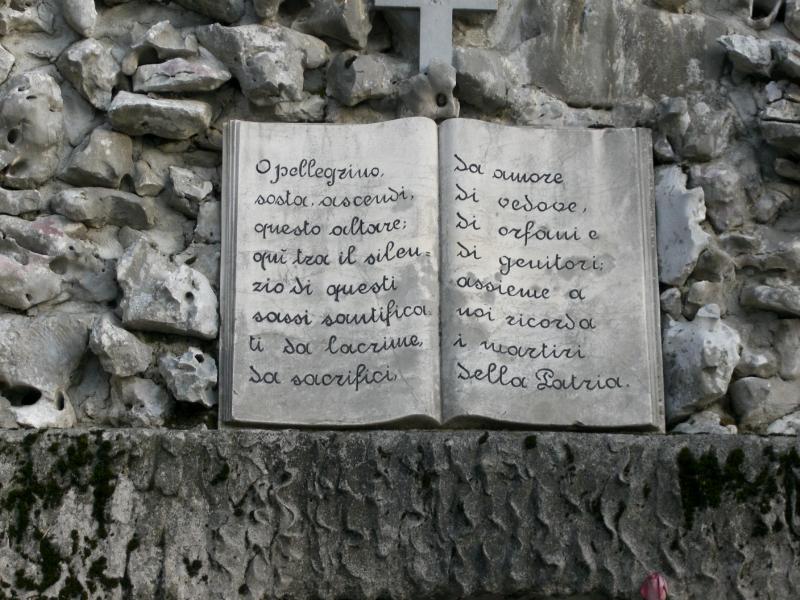 O pellegrino,
sosta, ascendi,
questo altare;
quì tra il silen=
zio di questi
sassi santifica.
ti da lacrime,
da sacrifici,
da amore
di vedove,
di orfani e
di genitori;
assieme a
noi ricorda
i martiri
della Patria.